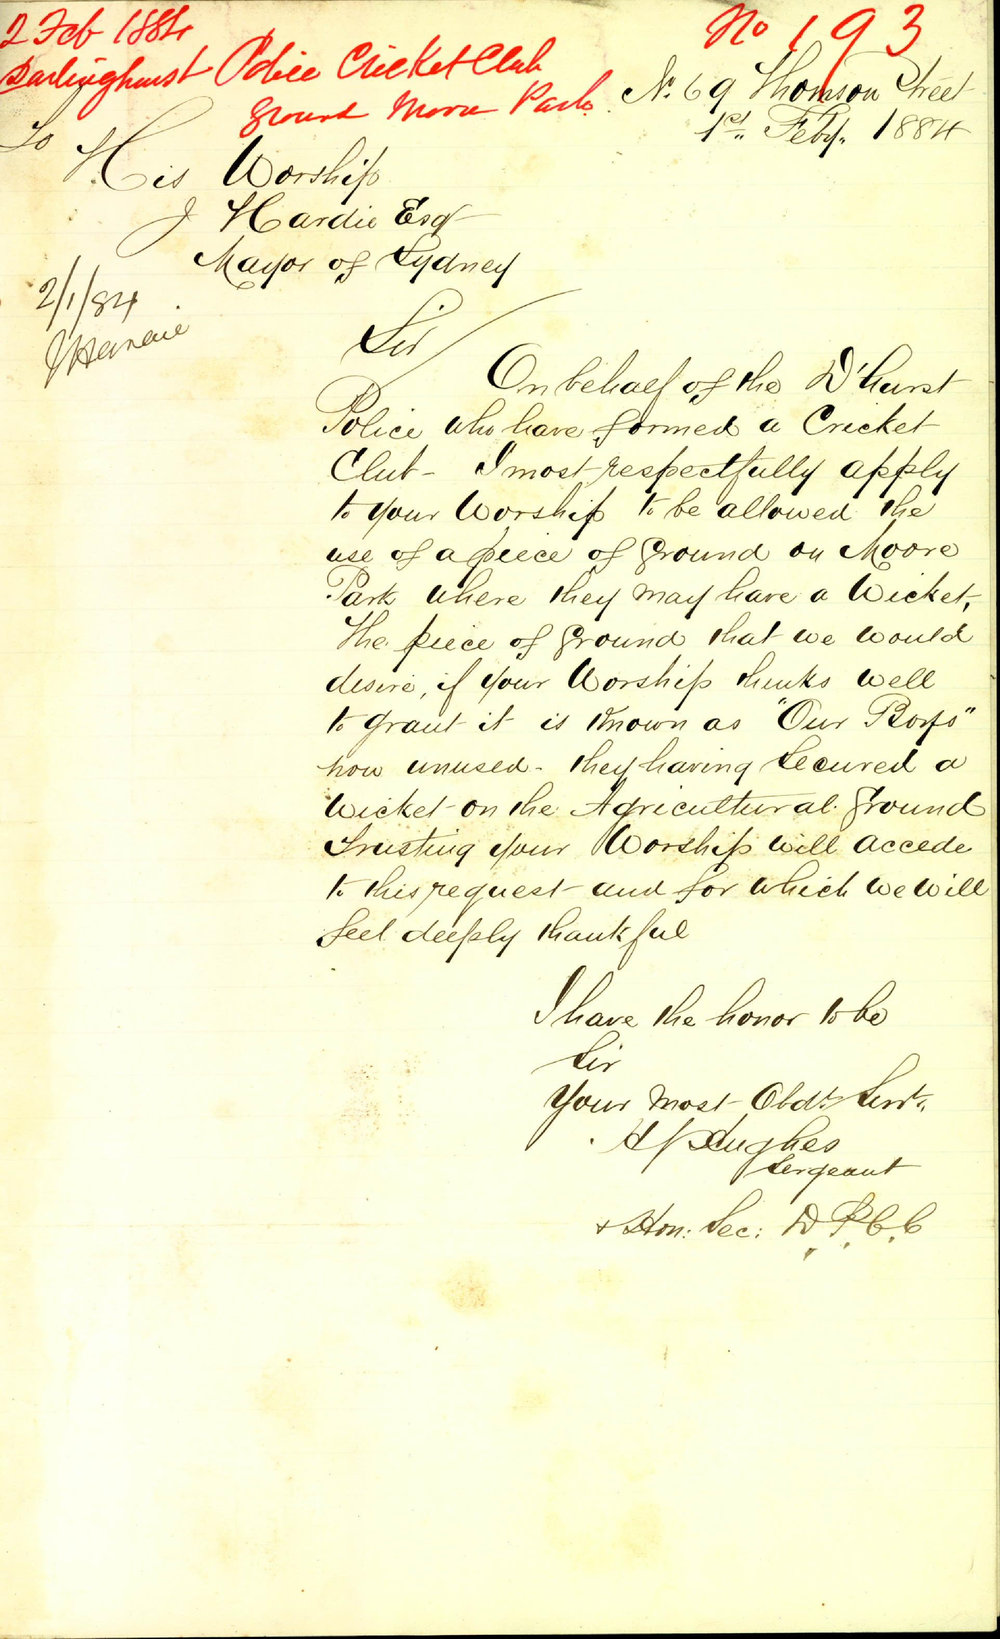 2 Feb 1884
No 193
Darlinghurst Police Cricket Club
Ground Moore Park
No. 69 Thomson Street
1st Feby. 1884
To
His Worship
J Hardie Esq
Mayor of Sydney
2/1/84
J Hardie
Sir
On behalf of the D'hurst
Police who have formed a Cricket
Club - I most respectfully apply
to your Worship to be allowed the
use of a piece of ground on Moore
Park where they may have a Wicket,
The piece of ground that we would
desire, if your Worship thinks well
to grant it is known as "Our Boys"
now unused - they having secured a
Wicket on the Agricultural Ground
Trusting your Worship will accede
to this request and for which we will
feel deeply thankful
I have the honor to be
Sir
Your most Obdt. Servt.
Hughes
Sergeant
& Hon: Sec: D.P.C.C